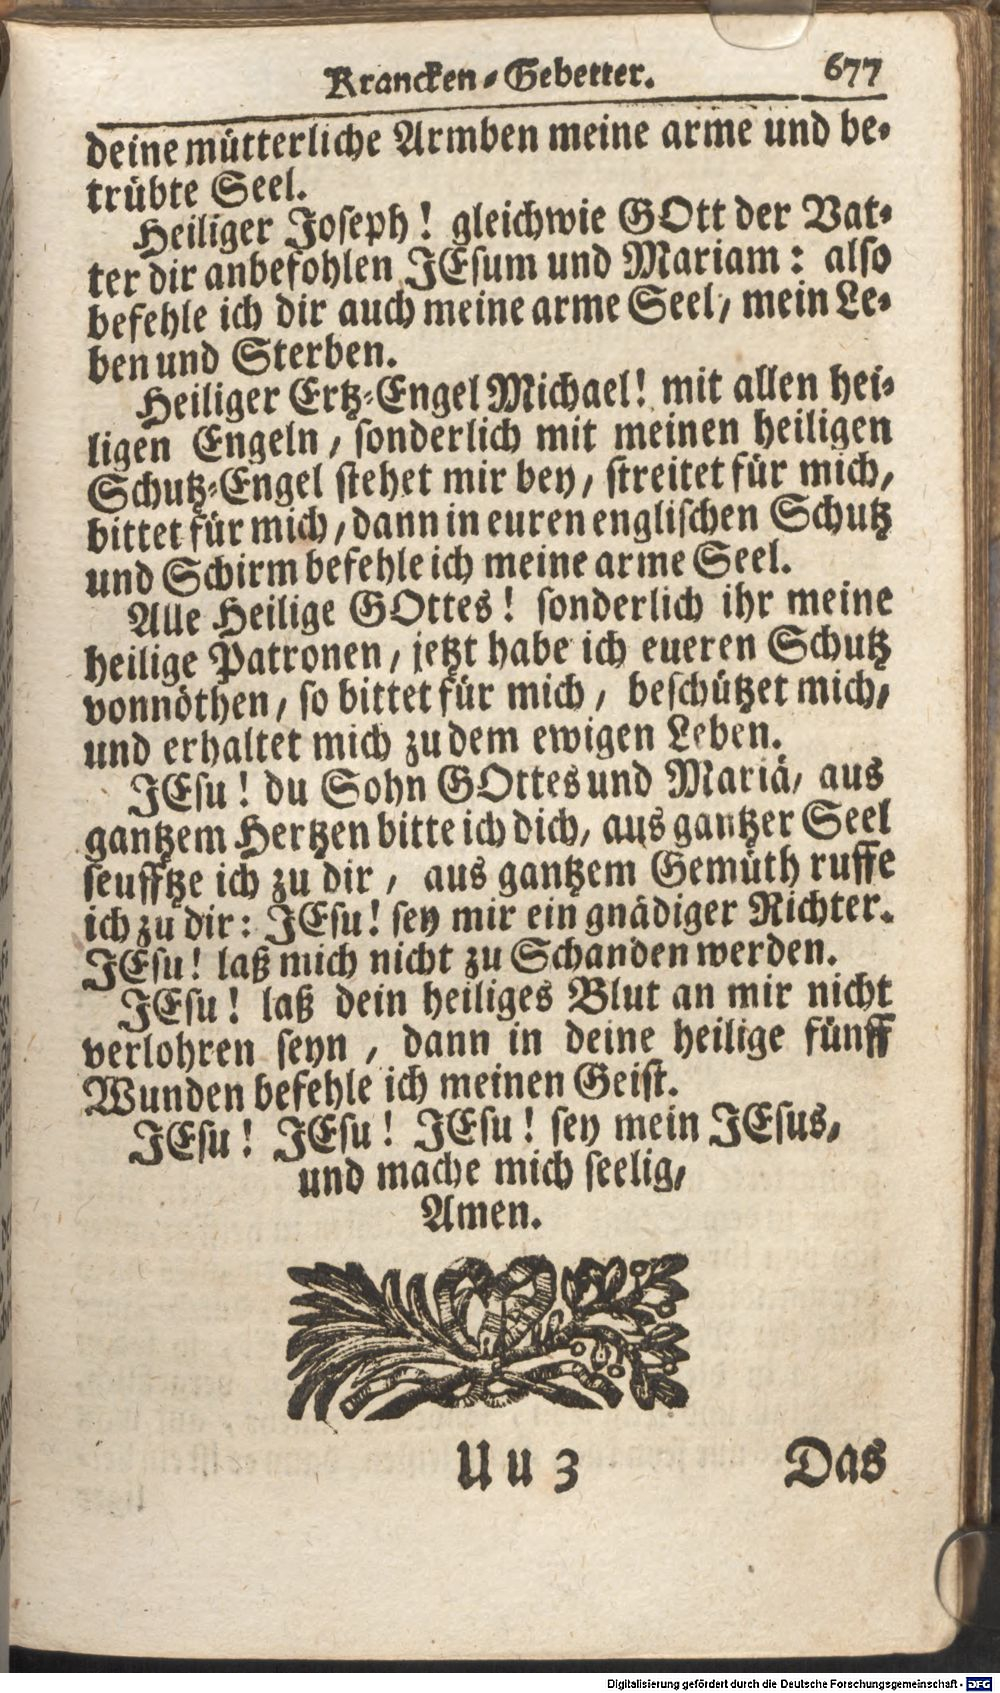 Krancken-Gebetter. 677
deine mütterliche Armben meine arme und be-
trübte Seel.
Heiliger Joseph! gleichwie GOtt der Vat-
ter dir anbefohlen JEsum und Mariam: also
befehle ich dir auch meine arme Seel, mein Le-
ben und Sterben.
Heiliger Ertz-Engel Michael! mit allen hei-
ligen Engeln, sonderlich mit meinen heiligen
Schutz-Engel stehet mir bey, streitet für mich,
bittet für mich, dann in euren englischen Schutz
und Schirm befehle ich meine arme Seel.
Alle Heilige GOttes! sonderlich ihr meine
heilige Patronen, jetzt habe ich eueren Schutz
vonnöthen, so bittet für mich, beschützet mich,
und erhaltet mich zu dem ewigen Leben.
JEsu! du Sohn GOttes und Mariä, aus
gantzem Hertzen bitte ich dich, aus gantzer Seel
seufftze ich zu dir, aus gantzem Gemüth ruffe
ich zu dir: JEsu! sey mir ein gnädiger Richter.
JEsu! laß mich nicht zu Schanden werden.
JEsu! laß dein heiliges Blut an mir nicht
verlohren seyn, dann in deine heilige fünff
Wunden befehle ich meinen Geist.
JEsu! JEsu! JEsu! sey mein JEsus,
und mache mich seelig,
Amen.
Uu 3 Das
Digitalisierung gefördert durch die Deutsche Forschungsgemeinschaft - DFG